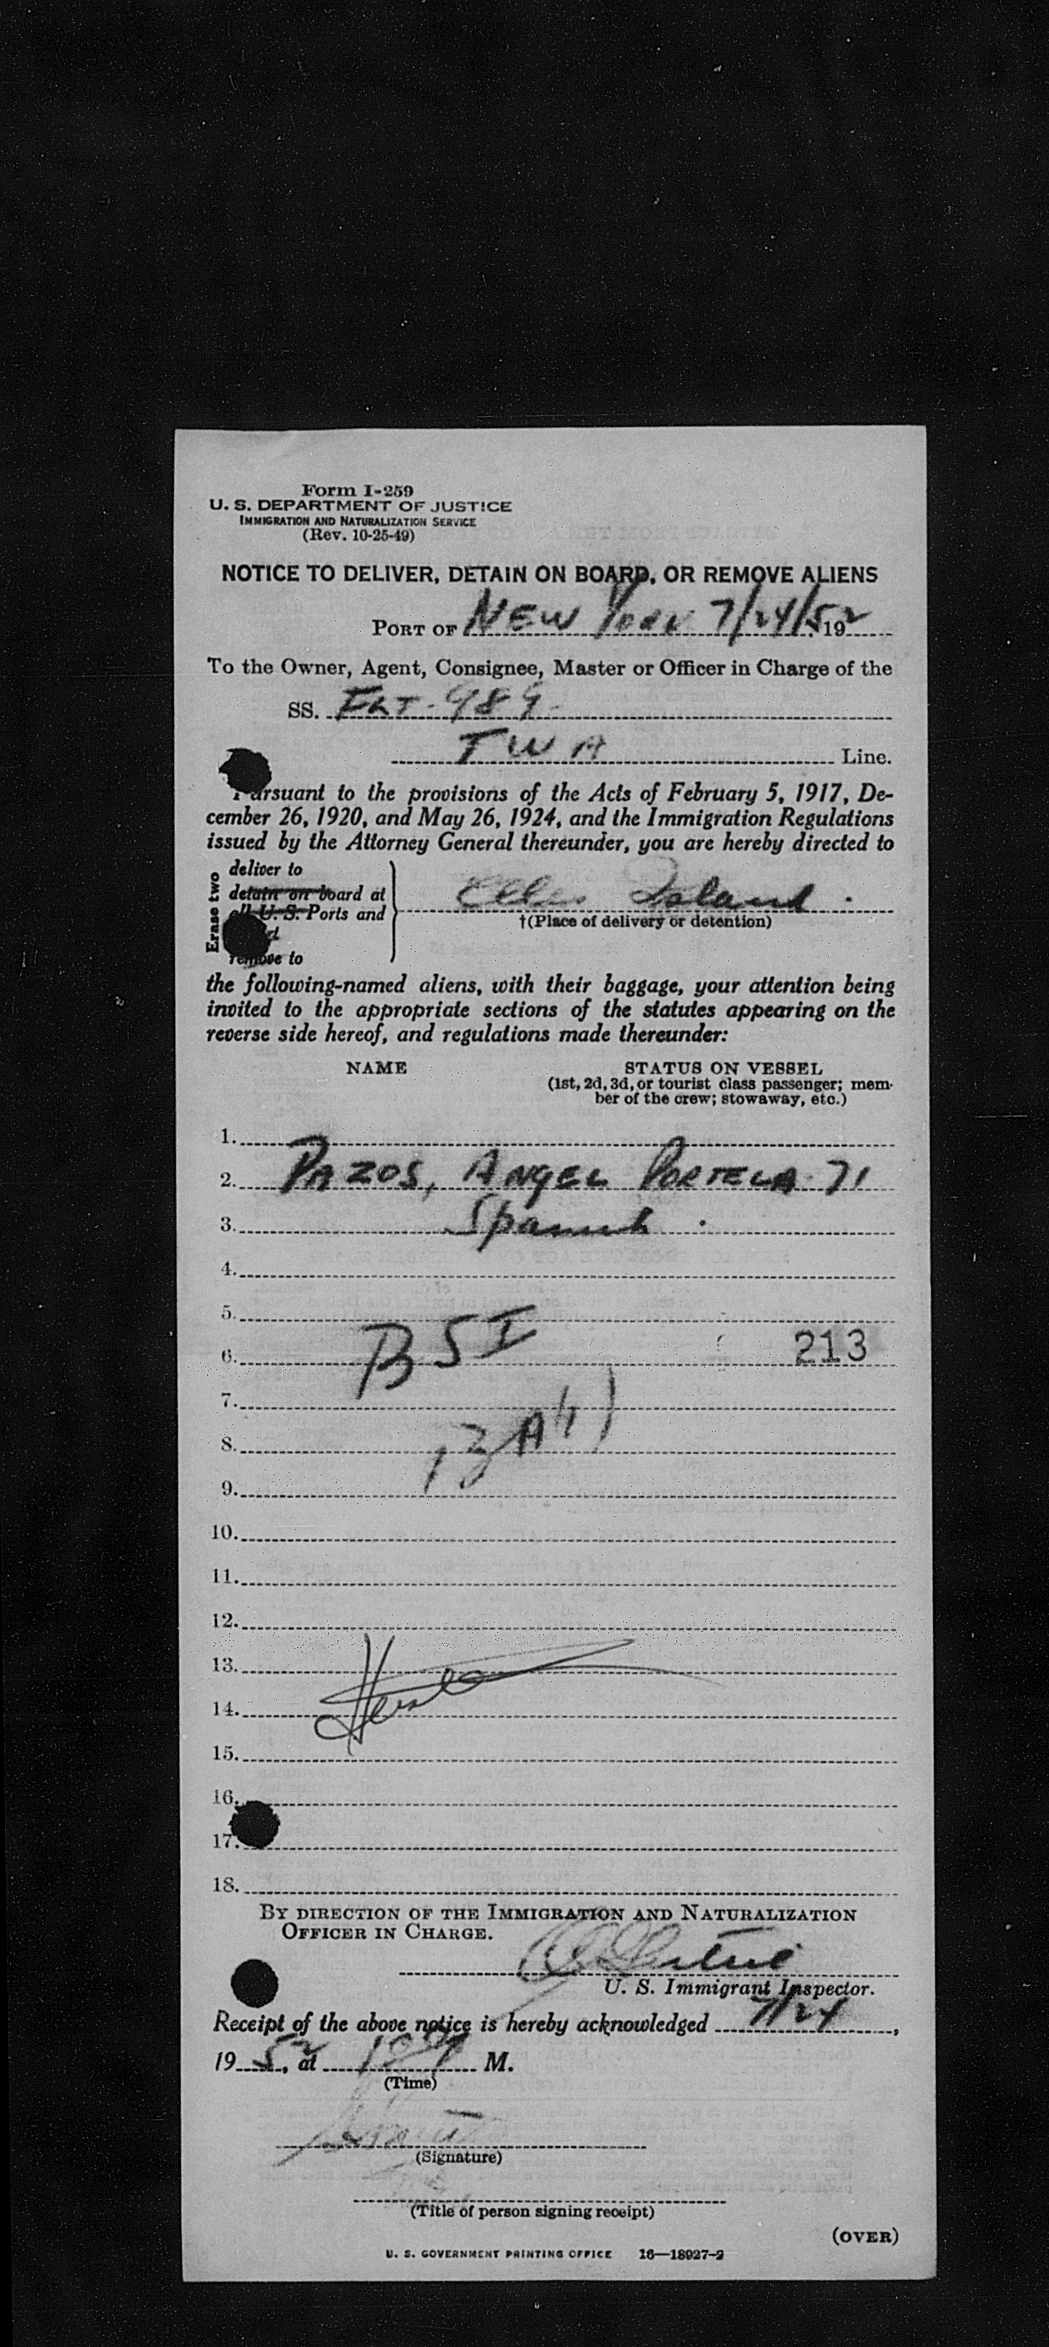 Form I-259
U. S. DEPARTMENT OF JUSTICE
IMMIGRATION AND NATURALIZATION SERVICE
(Rev. 10-25-49)
NOTICE TO DELIVER, DETAIN ON BOARD, OR REMOVE ALIENS
PORT OF NEW YORK 7/24/52 192
To the Owner, Agent, Consignee, Master or Officer in Charge of the
SS. FLT-989-
TWA Line.
Pursuant to the provisions of the Acts of February 5, 1917, De-
cember 26, 1920, and May 26, 1924, and the Immigration Regulations
issued by the Attorney General thereunder, you are hereby directed to
Erase two
deliver to
detain on board at
all U. S. Ports and
remove to
Ellis Island.
†(Place of delivery or detention)
the following-named aliens, with their baggage, your attention being
invited to the appropriate sections of the statutes appearing on the
reverse side hereof, and regulations made thereunder:
NAME STATUS ON VESSEL
(1st, 2d, 3d, or tourist class passenger; mem-
ber of the crew; stowaway, etc.)
1.
2. PAZOS, ANGEL PORTELA 71
3. Spanish.
4.
5.
6. BSI 213
7.
8.
9.
10.
11.
12.
13.
14.
15.
16.
17.
18.
BY DIRECTION OF THE IMMIGRATION AND NATURALIZATION
OFFICER IN CHARGE.
U. S. Immigrant Inspector.
Receipt of the above notice is hereby acknowledged 7/24,
19 52, at M.
(Time)
(Signature)
(Title of person signing receipt)
(OVER)
U. S. GOVERNMENT PRINTING OFFICE 16—18927-2